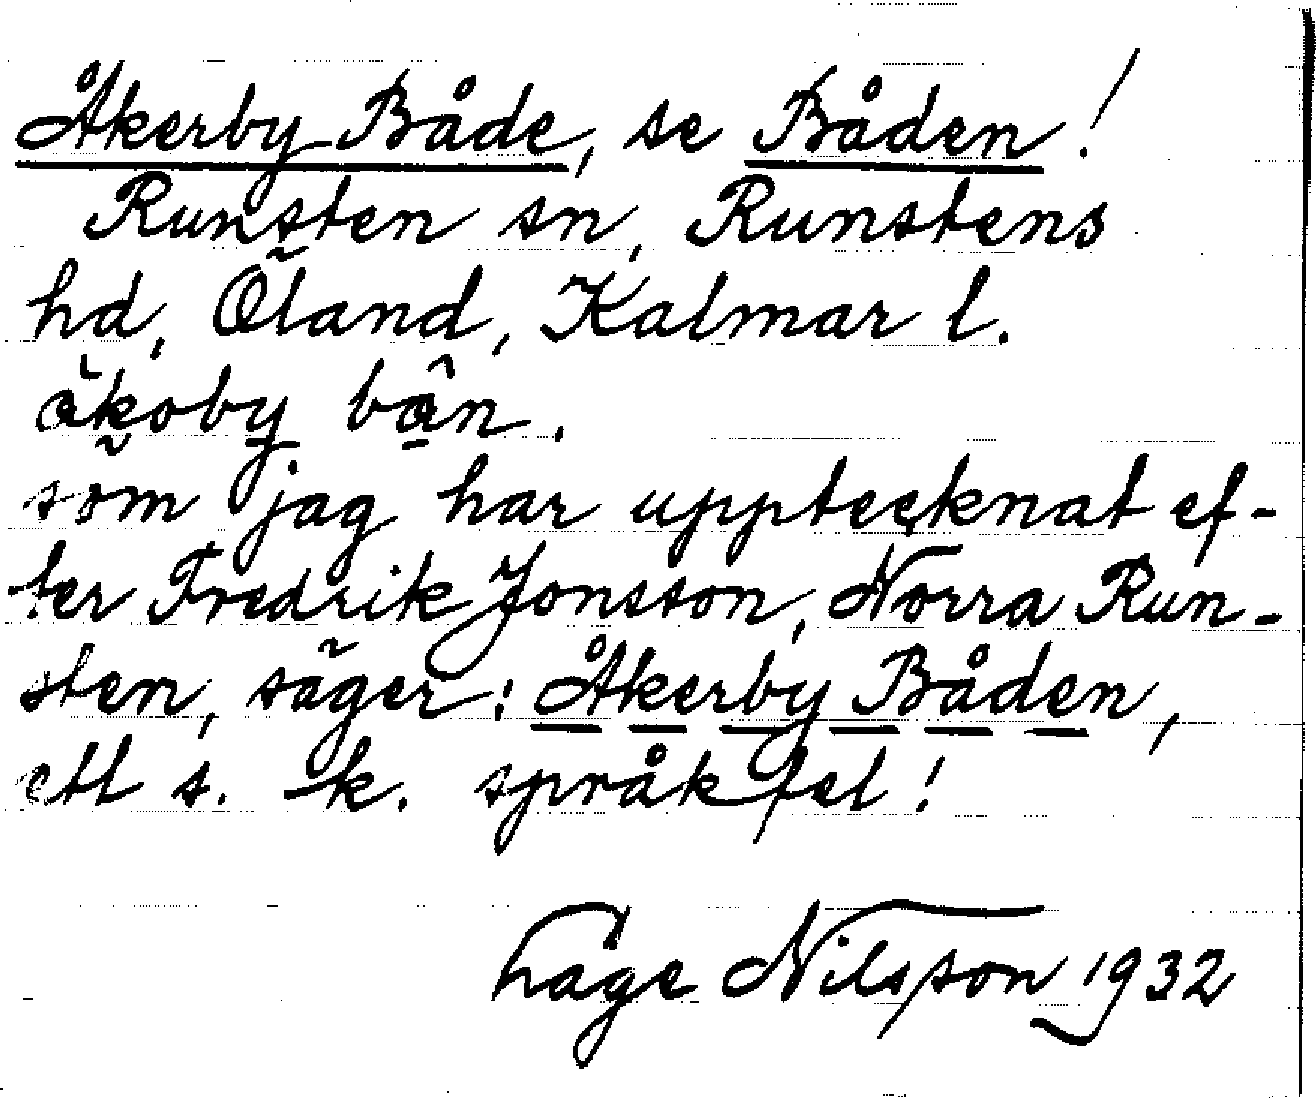 Åkerby Både, se Båden!
Runsten sn, Runstens
hd, Öland, Kalmar l.
åkoby bân.
som jag har upptecknat ef-
ter Fredrik Jonsson, Norra Run-
sten, säger: Åkerby Båden,
ett s. k. språkfel!
Låge Nilsson 1932